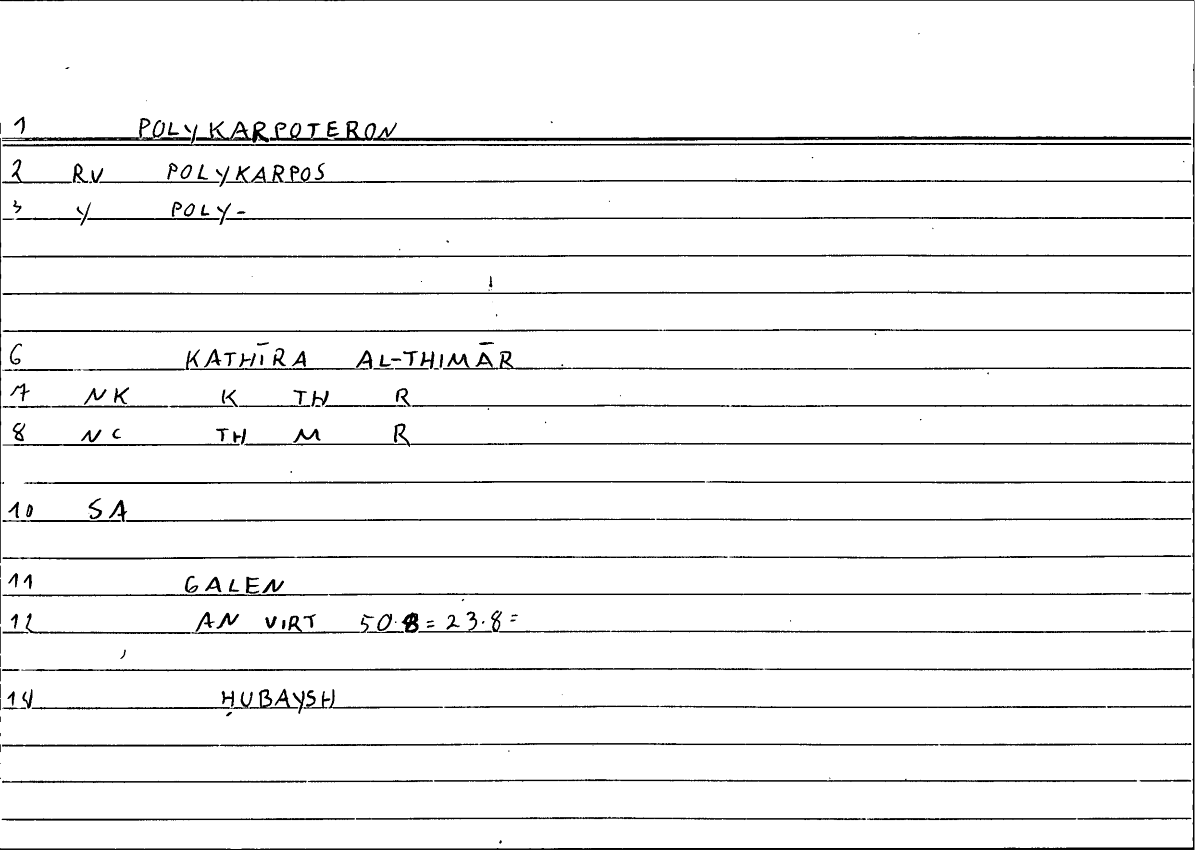 1 POLYKARPOTERON
2 RV POLYKARPOS
3 Y POLY-
6 KATHĪRA AL-THIMĀR
7 NK K TH R
8 NC TH M R
10 SA
11 GALEN
12 AN VIRT 50.8=23.8=
14 ḤUBAYSH